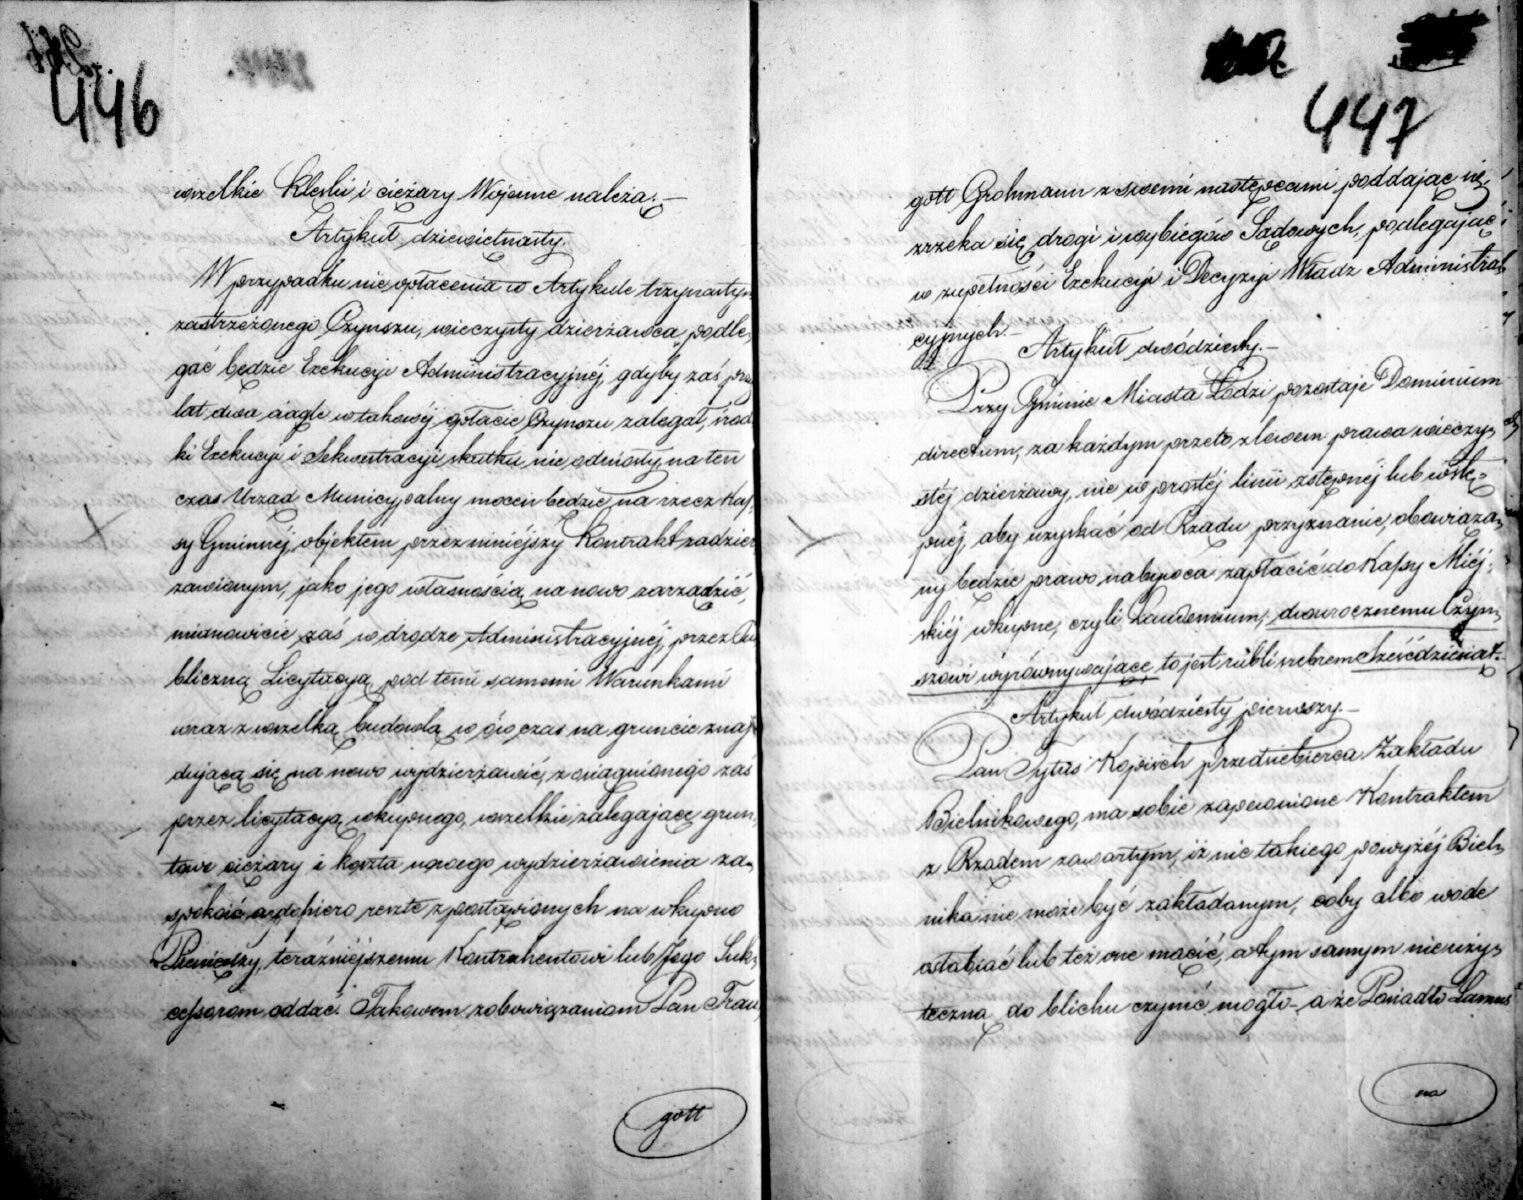 446
wszelkie Klęski i ciężary Wojenne należą. —
Artykuł dziewiętnasty.
W przypadku nie opłacenia w Artykule trzynastym
zastrzeżonego Czynszu, wieczysty dzierżawca podle„
gać będzie Exekucyi Administracyjnéj, gdyby zaś przez
lat dwa ciągle w takowéj opłacie Czynszu zalegał, środ„
ki Exekucyi i Sekwestracyi skutku nie odniosły, na ten
czas Urząd Municypalny mocen będzie, na rzecz Kas„
sy Gminnéj, objektem przez niniéjszy Kontrakt zadzier„
żawionym, jako jego własnością, na nowo zarządzić,
mianowicie zaś w drodze Administracyjnéj, przez Pu„
bliczną Licytacyą, pod temi samemi Warunkami
wraz z wszelką budowlą, w ów czas na gruncie znaj„
dującą się, na nowo wydzierżawić, z osiągnionego zaś
przez licytacyą wkupnego, wszelkie zalegające grun„
towe ciężary i koszta nowego wydzierżawienia za„
spokoić, a dopiero resztę z pozostawionych na wkupno
Pieniędzy, teraźniéjszemu Kontrahentowi lub Jego Suk„
cessorom oddać. Takowem zobowiązaniom Pan Trau„
gott
447
gott Grohmann z swemi następcami poddając się,
zrzeka się drogi i wybiegów Sądowych, podlegając
w zupełności Exekucyi i Decyzyi Władz Administra„
cyjnych. —
Artykuł dwódziesty. —
Przy Gminie Miasta Łodzi pozostaje Dominium
directum, za każdym przeto zlewem prawa wieczy„
stéj dzierżawy, nie w prostéj linii zstępnéj lub wstę„
pnéj, aby uzyskać od Rządu przyznanie, obowiąza„
ny będzie prawo nabywca zapłacić do Kassy Miéj„
skiéj wkupne, czyli Laudemium, dwurocznemu Czyn„
szowi wyrównywające to jest rubli srebrem sześćdziesiąt. —
Artykuł dwódziesty pierwszy. —
Pan Tytus Kopisch Przedsiębierca Zakładu
Bielnikowego, ma sobie zapewnione Kontraktem
z Rządem zawartym, iż nic takiego powyżéj Biel„
nika nie może być zakładanym, coby albo wodę
osłabiać lub też onę mącić, a tym samym nieuży„
teczną do blichu czynić mogło — a że Posiadło Lamus
na